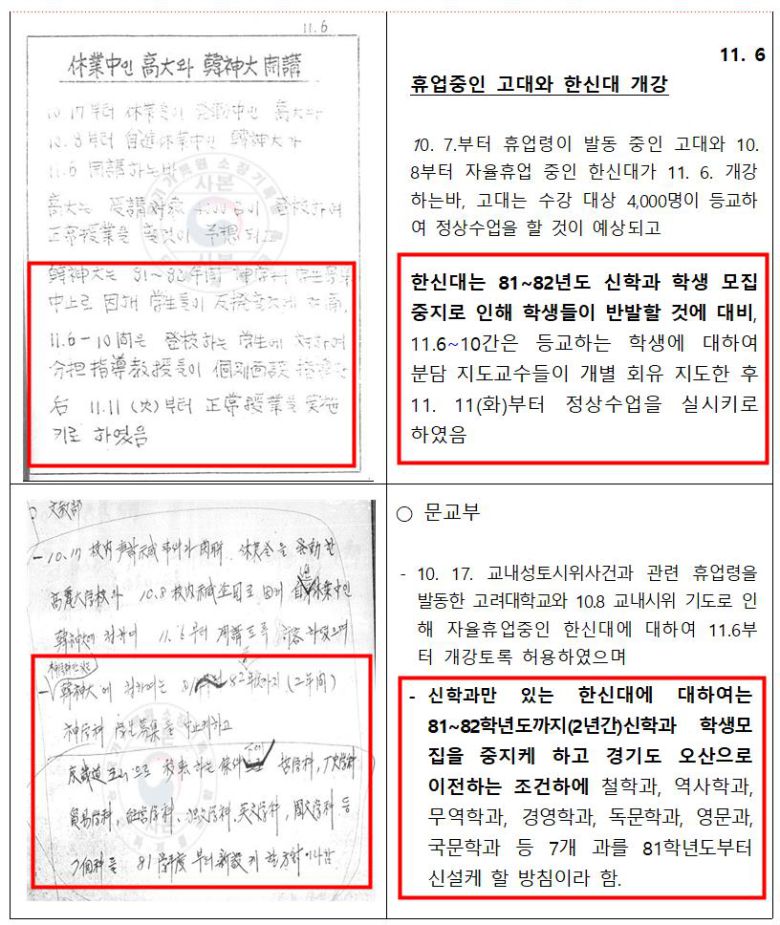 11.6
休業中인 高大와 韓神大 開講
10.17부터 休業令이 発動中인 高大와
10.8부터 自進休業中인 韓神大가
11.6 開講하는바
高大는 受講対象 4,000名이 登校하여
正常授業을 할것이 予想되고
韓神大는 81~82年度 神学科 学生募集
中止로 因해 学生들이 反撥할것에 対備,
11.6-10間은 登校하는 学生에 対하여
分担指導教授들이 個別面談 指導한
后 11.11(火)부터 正常授業을 実施
키로 하였음
11. 6
휴업중인 고대와 한신대 개강
10. 7.부터 휴업령이 발동 중인 고대와 10.
8부터 자율휴업 중인 한신대가 11. 6. 개강
하는바, 고대는 수강 대상 4,000명이 등교하
여 정상수업을 할 것이 예상되고
한신대는 81~82년도 신학과 학생 모집
중지로 인해 학생들이 반발할 것에 대비,
11.6~10간은 등교하는 학생에 대하여
분담 지도교수들이 개별 회유 지도한 후
11. 11(화)부터 정상수업을 실시키로
하였음
○ 文教部
- 10.17 校内声討示威事件과 関聯, 休業令을 発動한
高麗大学校와 10.8 校内示威企図로 因해 休業中인
韓神大에 対하여 11.6부터 開講토록 許容하였으며
- 韓神大에 対하여는 81 82 (2年間)
神学科 学生募集을 中止케하고
京畿道 오산으로 移転하는 条件 哲学科, 史学科
貿易学科, 経営学科, 独文学科, 英文学科, 国文学科 等
7個科를 81学年度부터 新設케 할 方針이라함
○ 문교부
- 10. 17. 교내성토시위사건과 관련 휴업령을
발동한 고려대학교와 10.8 교내시위 기도로 인
해 자율휴업중인 한신대에 대하여 11.6부
터 개강토록 허용하였으며
- 신학과만 있는 한신대에 대하여는
81~82학년도까지(2년간)신학과 학생모
집을 중지케 하고 경기도 오산으로
이전하는 조건하에 철학과, 역사학과,
무역학과, 경영학과, 독문학과, 영문과,
국문학과 등 7개 과를 81학년도부터
신설케 할 방침이라 함.